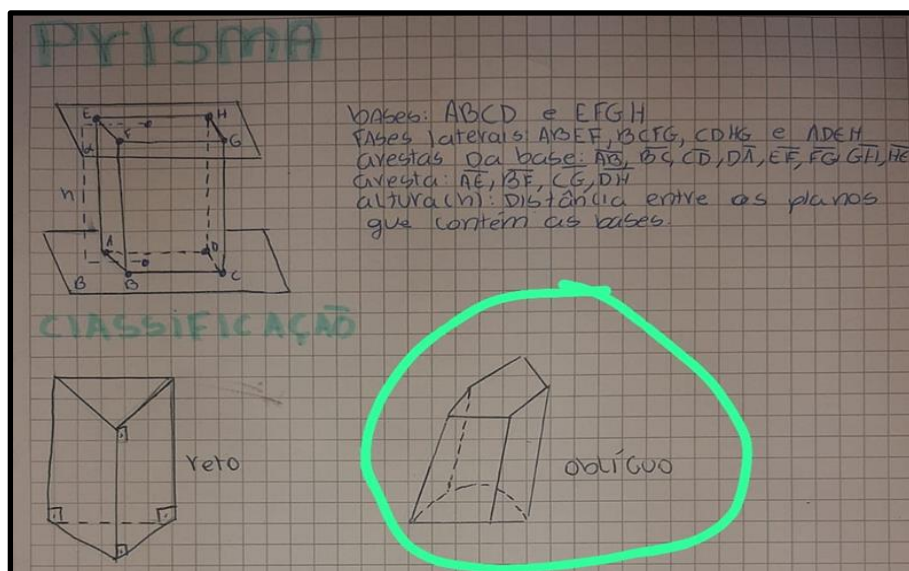 PRISMA
E H
F
G
α
h
A D
B B C
bases: ABCD e EFGH
FASES laterais: ABEF, BCFG, CDHG e ADEH
arestas Da base: AB, BC, CD, DA, EF, FG, GH, HE
avesta: AE, BF, CG, DH
altura(h): Distância entre os planos
que contém as bases.
CLASSIFICAÇÃO
reto
oblíquo